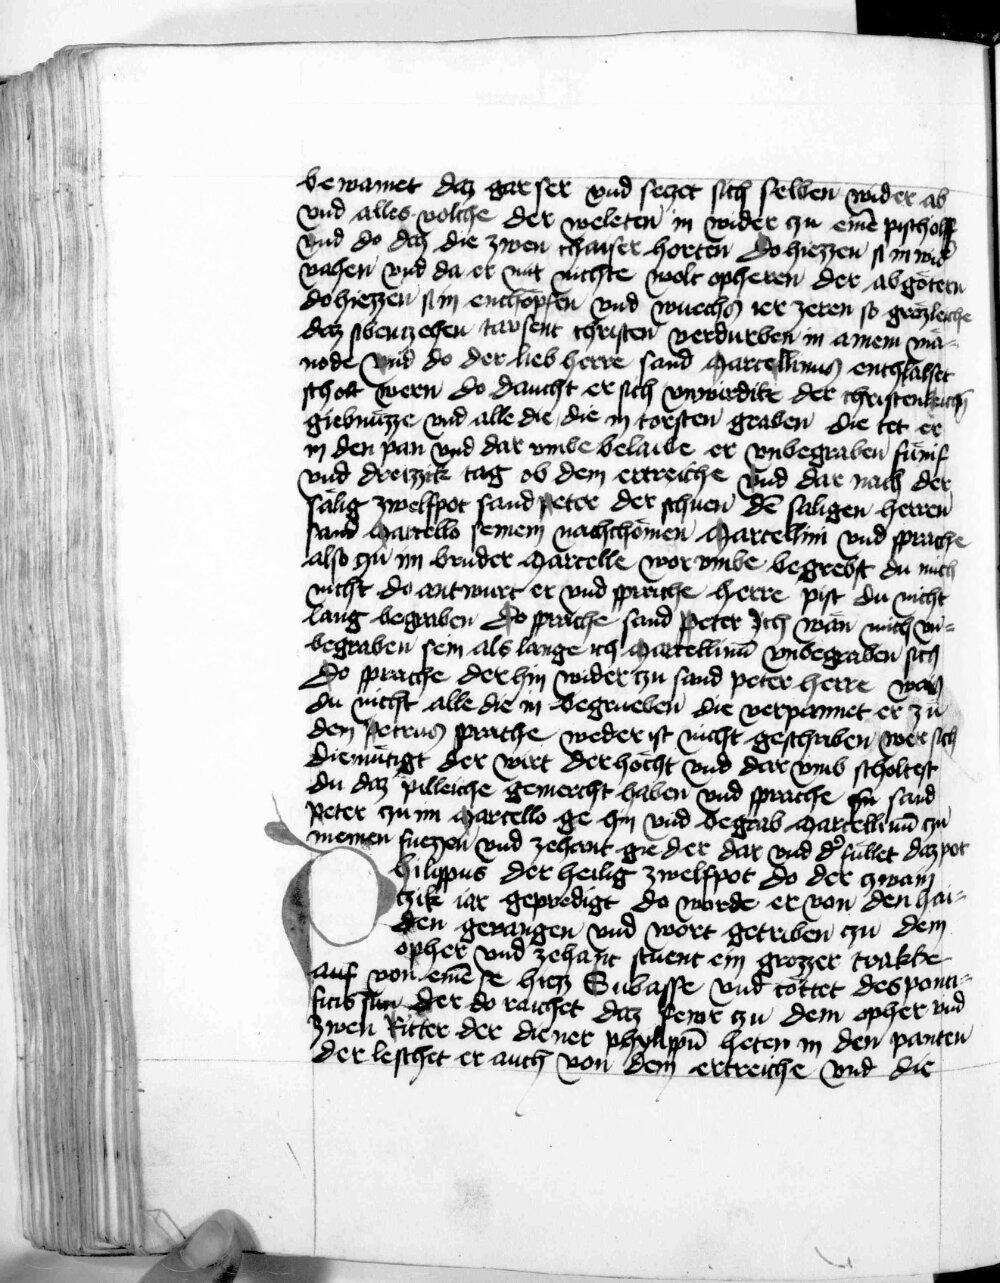 bewainet daz gar ser vnd seczet sich selben wider ab
vnd alles volche der weleten in wider zu eine᷑ pischolff
vnd do daz die zwen chaiser horten do hiezzen si in wid᷑
vahen vnd da er mit nichte wolt opheren der abgötern
do hiezzen si in enchöpfen vnd wuechs ier zeren so grözleiche
daz sibenzehen tavsent christen verdurben in ainem mä-
node vnd do der lieb herre sand Marcellinus enthalset
scholt wern do daucht er sich vnwirdik der christenleich᷑
giebnüzze vnd alle die die in torsten graben die tet er
in den pan vnd dar vmbe belaibe er vnbegraben fünf
vnd dreizzik tag ob dem ertreiche vnd dar nach der
sälig zwelfpot sand Peter der schuen de᷑ säligen herren
sand Marcello seinem nachchömen Marcellini vnd sprache
also zu im bruder Marcelle wor vmbe begrebst du mich
nicht do antwurt er vnd sprache herre pist du nicht
lang begraben do sprache sand Peter Ich wän mich vn-
begraben sein als lange ich Marcellinu᷑ vnbegraben sich
Do sprache der hin wider zu sand peter herre wais
du nicht alle die in begrueben die verpannet er zü
den Petrus sprache weder ist nicht geschriben wer sich
diemütigt der wirt derhöcht vnd dar vmb scholtest
du daz pilleiche gemercht haben vnd sprache sand
Peter zu im Marcello ge hin vnd begrab Marcellinu᷑ zu
meinen fuezzen vnd zehant gie der dar vnd d᷑ füllet daz pot
hilippus der heilig zwelfpot do der zwain
czik iar gepredigt do warde er von den hai-
den gevangen vnd wort getriben zu dem
opher vnd zehant stuent ein grozzer trakke
auf von eine᷑ se hiez Subasse vnd töttet des ponti-
ficis sun der do raichet daz fewr zu dem opher vnd
zwen Ritter der diener phylippu᷑ heten in den panten
der leschet er auch von dem ertreiche vnd die